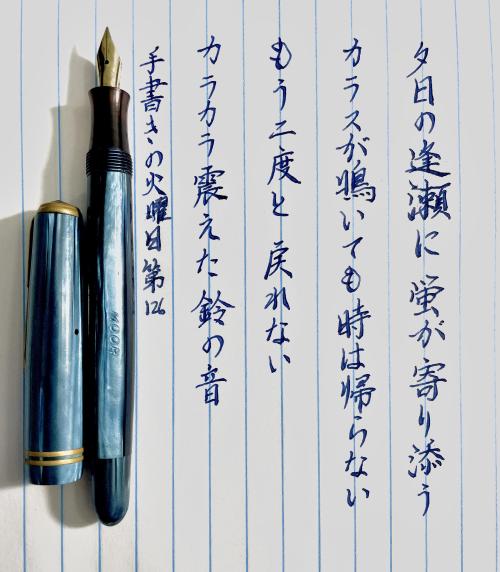 夕日の逢瀬に 蛍が寄り添う
カラスが鳴いても 時は帰らない
もう二度と 戻れない
カラカラ震えた 鈴の音
手書きの火曜日 第126
MOOR